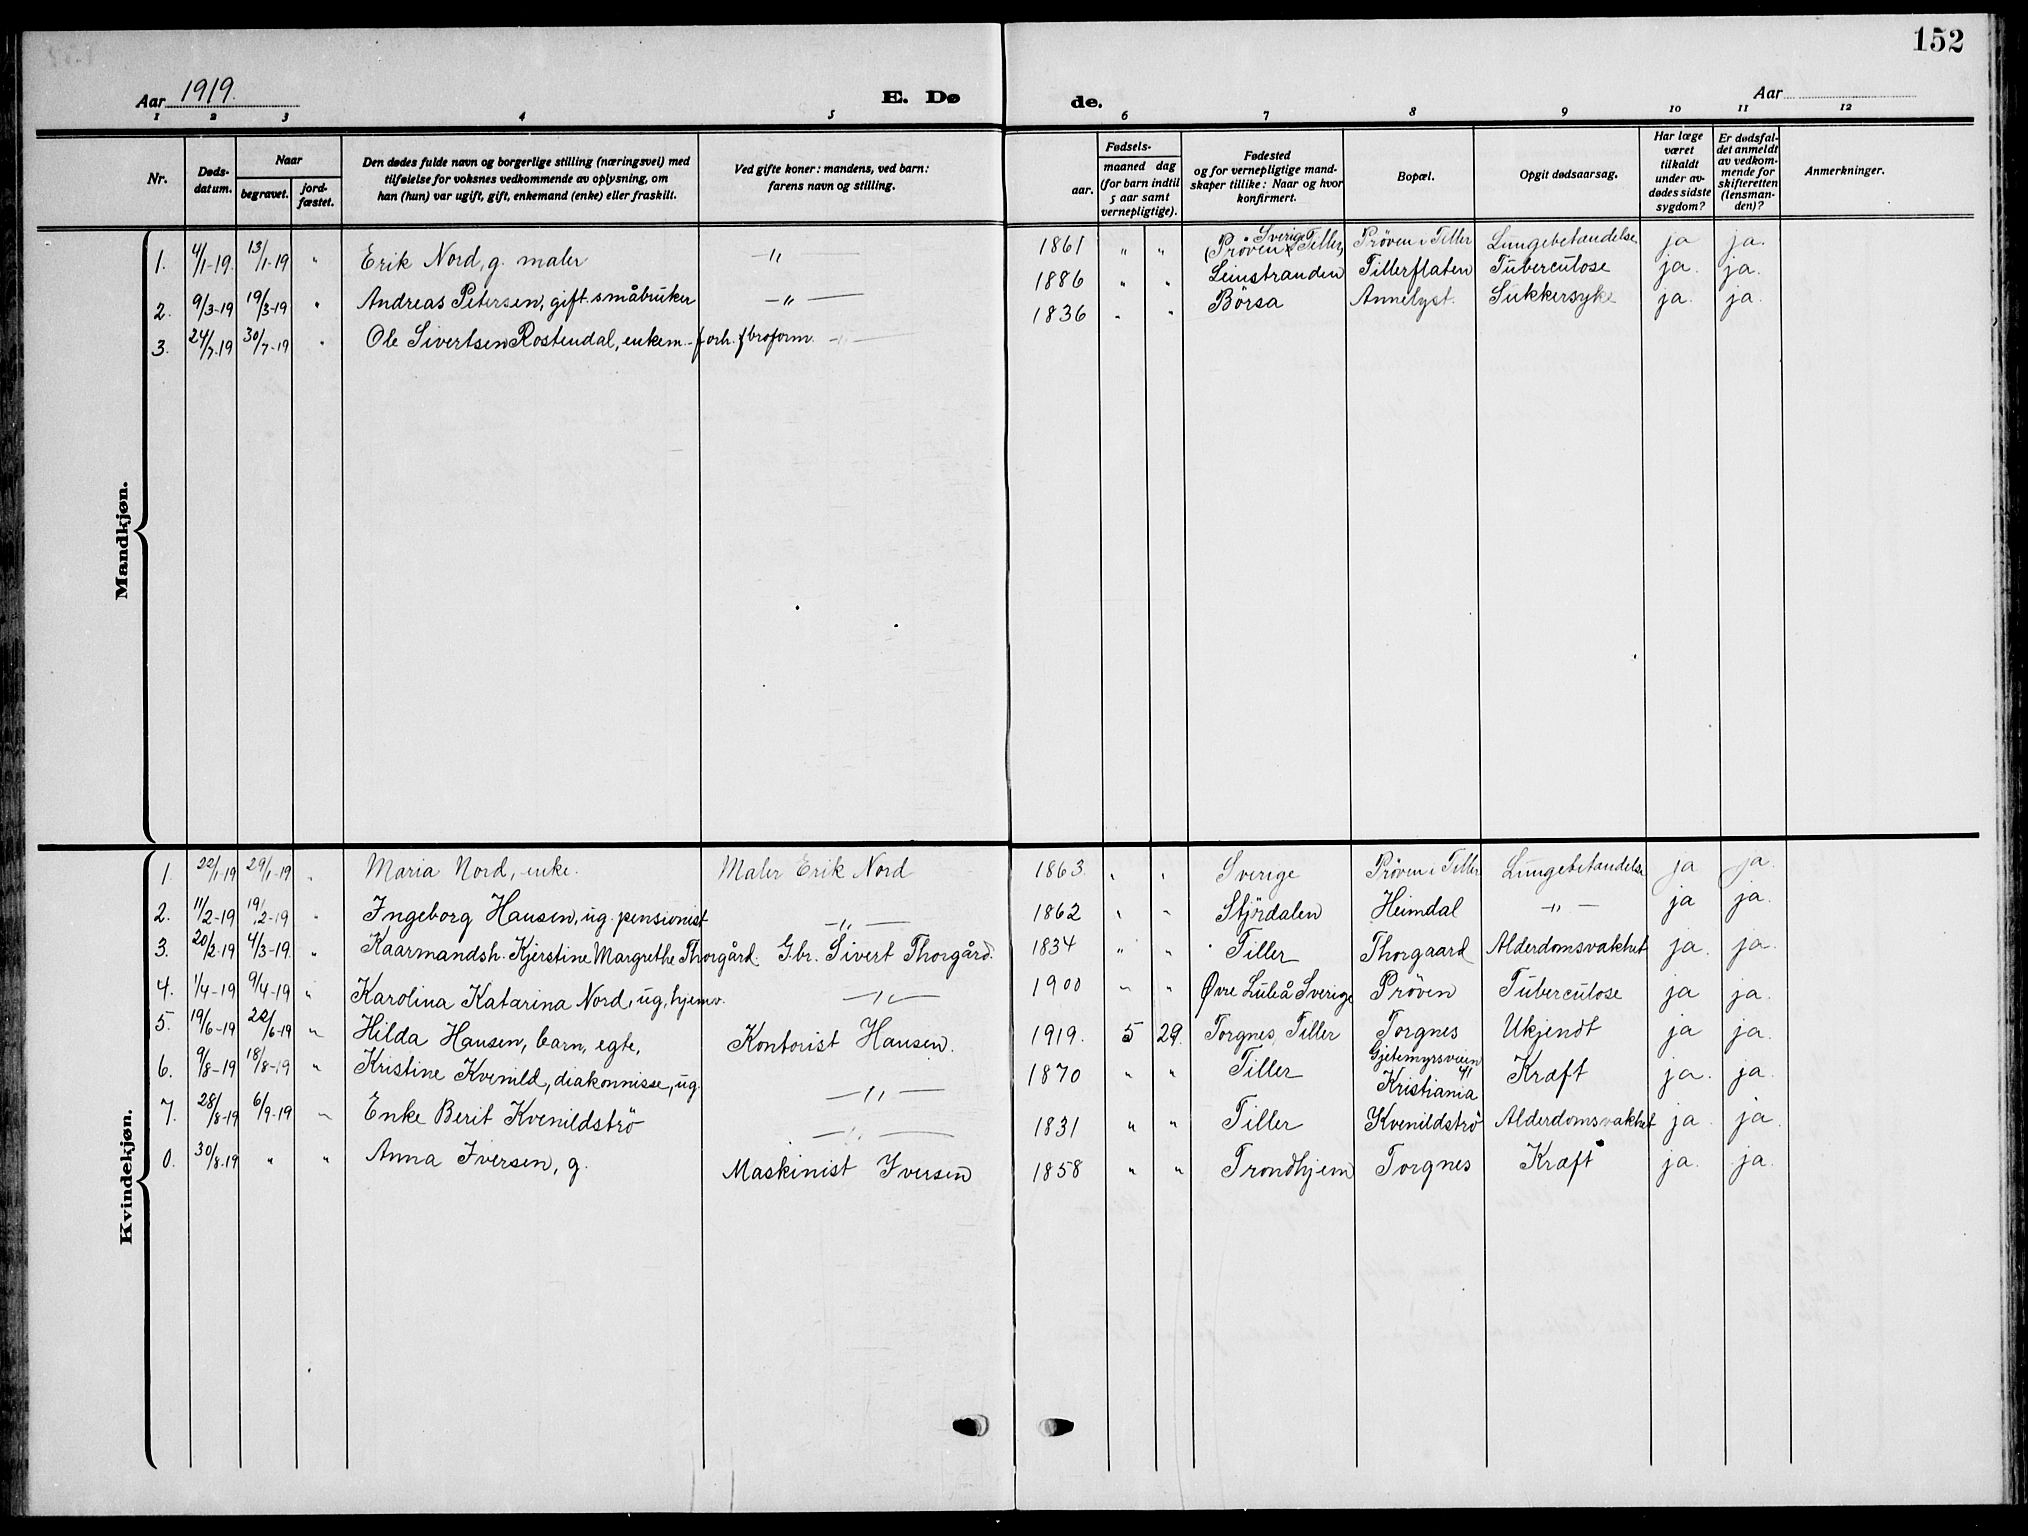 152
Aar 1919.
E. Dø de.
Aar
1 2 3 4 5 6 7 8 9 10 11 12
Nr. | Døds-datum. | Naar begravet. | jord-fæstet. | Den dødes fulde navn og borgerlige stilling (næringsvei) med tilføielse for voksnes vedkommende av oplysning, om han (hun) var ugift, gift, enkemand (enke) eller fraskilt. | Ved gifte koner: mandens, ved barn: farens navn og stilling. | Fødsels- aar. | maaned dag (for barn indtil 5 aar samt vernepligtige). | Fødested og for vernepligtige mand-skaper tillike: Naar og hvor konfirmert. | Bopæl. | Opgit dødsaarsag. | Har læge været tilkaldt under av-dødes sidste sygdom? | Er dødsfal-det anmeldt av vedkom-mende for skifteretten (lensman-den)? | Anmerkninger.
Mandkjøn.
1. 4/1-19. 13/1-19 " Erik Nord, g. maler —"— 1861 " " (Prøven i Tiller) Sverige Prøven i Tiller Lungebetændelse ja ja.
2. 9/3-19 19/3-19 " Andreas Petersen, gift. småbruker —"— 1886 " " Leinstranden Tillerflaten Tuberculose ja. ja.
3. 24/7-19 30/7-19 " Ole Sivertsen Rostendal, enkem. - forh. broform. —"— 1836 " " Börsa Annelyst. Sukkersyke ja. ja.
Kvindekjøn.
1. 22/1-19 29/1-19 " Maria Nord, enke. Maler Erik Nord 1863 " " Sverige Prøven i Tiller Lungebetændelse ja ja.
2. 11/2-19 19/2-19 " Ingeborg Hansen, ug. pensionist —"— 1862 " " Stjördalen Heimdal —"— ja ja.
3. 20/2-19 4/3-19. " Kaarmandsh. Kjerstine Margrethe Thorgård. Gbr. Sivert Thorgård. 1834 " " Tiller Thorgaard Alderdomsvakhet ja. ja.
4. 1/4-19 9/4-19 " Karolina Katarina Nord, ug, hjemv. —"— 1900 " " Øvre Luleå Sverige Prøven Tuberculose ja ja.
5. 19/6-19 22/6-19 " Hilda Hansen, barn, egte, Kontorist Hansen. 1919. 5 29. Torgnes, Tiller Torgnes Ukjendt ja ja.
6. 9/8-19 18/8-19 " Kristine Kvenild, diakonnisse, ug. —"— 1870 " " Tiller Gjetemyrsveien 41 Kristiania Kræft ja. ja.
7. 28/8-19 6/9-19 " Enke Berit Kvenildströ —"— 1831 " " Tiller Kvenildströ Alderdomsvakhet ja. ja.
0. 30/8-19 " " Anna Iversen, g. Maskinist Iversen 1858 " " Trondhjem Torgnes Kræft ja. ja.